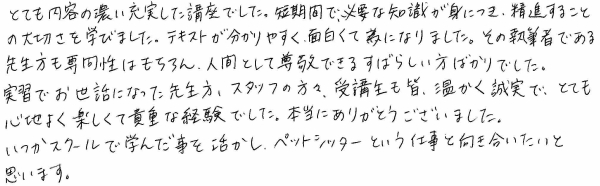 とても内容の濃い充実した講座でした。短期間で必要な知識が身につき、精進すること
の大切さを学びました。テキストが分かりやすく、面白くて為になりました。その執筆者である
先生方も専門性はもちろん、人間として尊敬できるすばらしい方ばかりでした。
実習でお世話になった先生方、スタッフの方々、受講生も皆、温かく誠実で、とても
心地よく楽しくて貴重な経験でした。本当にありがとうございました。
いつかスクールで学んだ事を活かし、ペットシッターという仕事と向き合いたいと
思います。